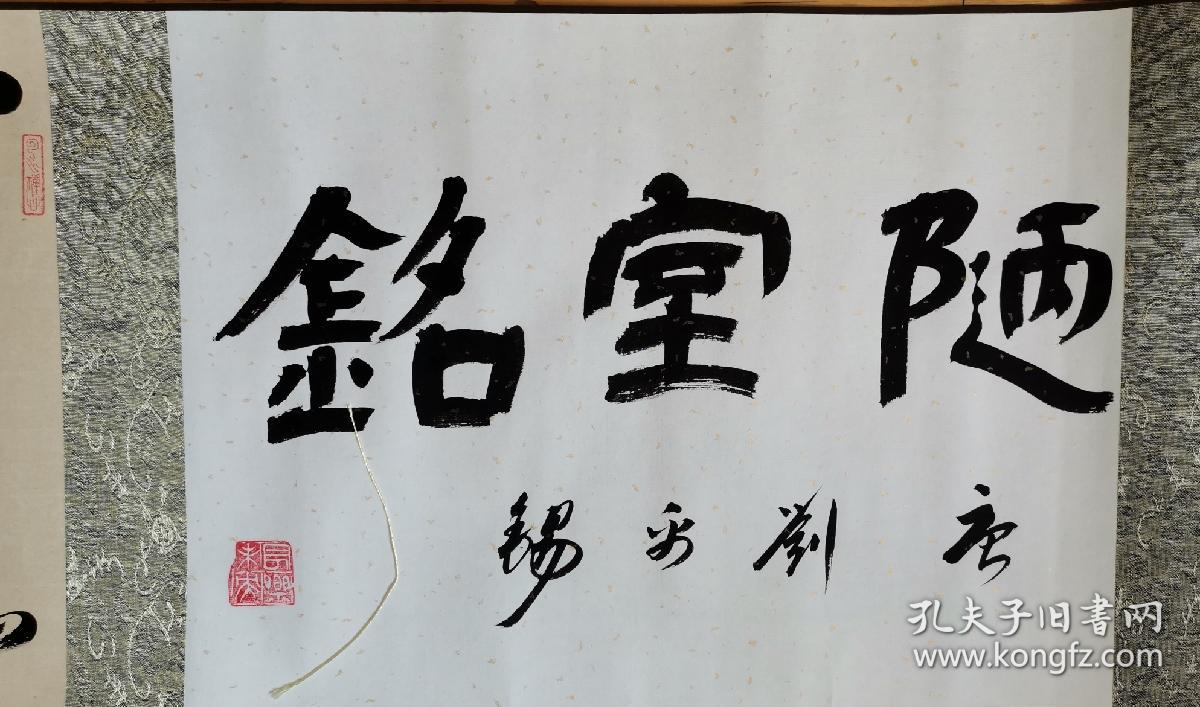 陋室銘
唐 劉禹錫
孔夫子旧書网
www.kongfz.com